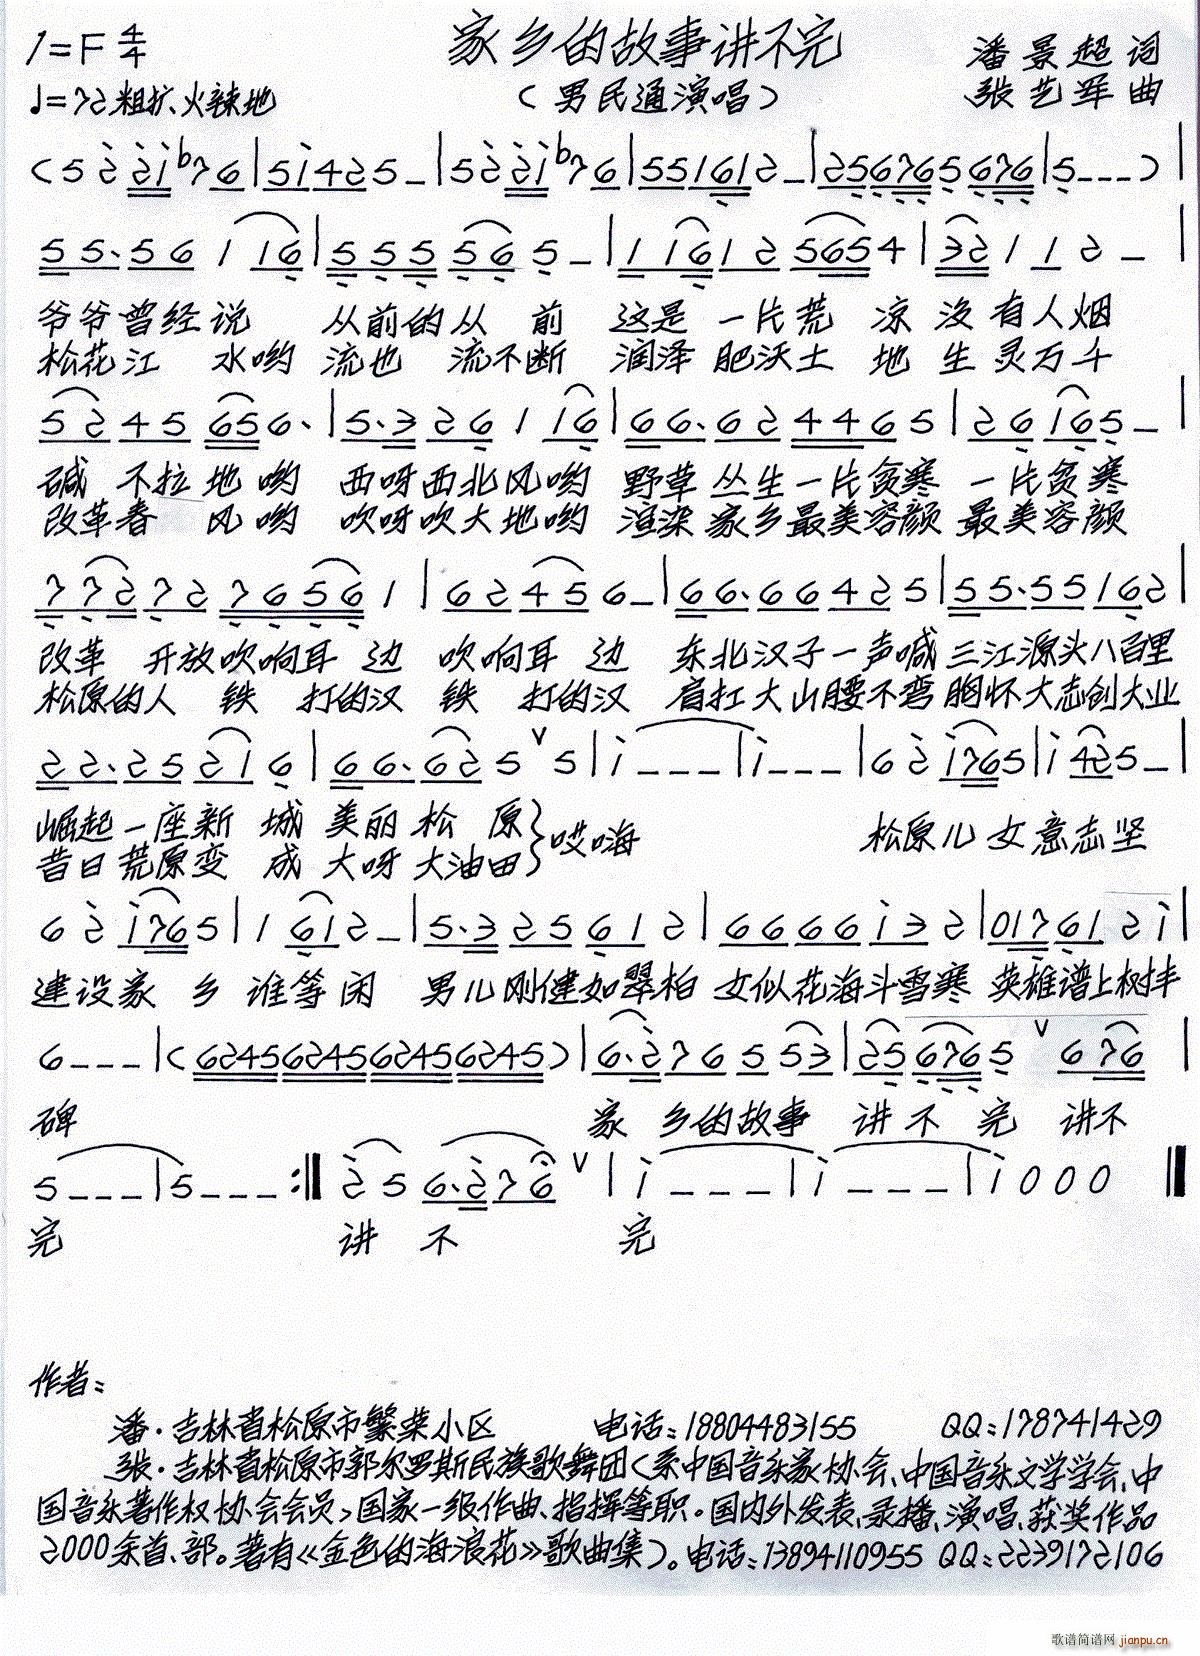 1=F 4/4 家乡的故事讲不完 潘景超 词
♩=72 粗扩、火辣地 (男民通演唱) 张艺军 曲
(5 2̇ 2̇i̇ ♭7 6 | 5 i̇ 4 2 5 – | 5 2̇ 2̇i̇ ♭7 6 | 5 5 1 6 1 2 – | 2 5 6 7 6 5 6 7 6 | 5 – – – )
5 5· 5 6 1 1 6 | 5 5 5 5 6 5 – | 1 1 6 1 2 5 6 5 4 | 3 2 1 1 2 – |
爷爷曾经说 从前的从 前 这是 一片荒 凉 没有人烟
松花江 水哟 流也 流不断 润泽 肥沃土 地 生 灵万千
5 2 4 5 6 5 6· | 5· 3 2 6 1 1 6 | 6 6· 6 2 4 4 6 5 | 2 6 1 6 5 – |
碱 不拉地哟 西呀西北风哟 野草丛生一片贫寒 一片贫寒
改革春 风哟 吹呀吹大地哟 渲染家乡最美容颜 最美容颜
7 7 2 7 2 7 6 5 6 1 | 6 2 4 5 6 – | 6 6· 6 6 4 2 5 | 5 5· 5 5 1 6 2 |
改革 开放吹响耳 边 吹响耳 边 东北汉子一声喊 三江源头八百里
松原的人 铁 打的汉 铁 打的汉 肩扛大山腰不弯 胸怀大志创大业
2 2· 2 5 2 1 6 | 6 6· 6 2 5 ∨ 5 | i̇ – – – | i̇ – – – | 6 2̇ i̇ 7 6 5 | i̇ 4 2 5 – |
崛起一座新 城 美丽松 原}哎嗨 松原儿女意志坚
昔日荒原变 成 大呀大油田
6 2̇ i̇ 7 6 5 | 1 6 1 2 – | 5· 3 2 5 6 1 2 | 6 6 6 6 i̇ 3 2 | 0 1 7 6 1 2 i̇ |
建设家 乡 谁等闲 男儿刚健如翠柏 女似花海斗雪寒 英雄谱上树丰
6 – – – | (6245 6245 6245 6245) | 6· 2̇ 7 6 5 5 3 | 2 5 6 7 6 5 ∨ 6 7 6 |
碑 家 乡的故事 讲不 完 讲不
5 – – – | 5 – – – :‖ 2̇ 5 6· 2̇ 7 6 ∨ | i̇ – – – | i̇ – – – | i̇ 0 0 0 ‖
完 讲 不 完
作者:
潘·吉林省松原市繁荣小区 电话:18804483155 QQ:178741429
张·吉林省松原市郭尔罗斯民族歌舞团(系中国音乐家协会、中国音乐文学学会、中
国音乐著作权协会会员)国家一级作曲、指挥等职。国内外发表、录播、演唱、获奖作品
2000余首、部。著有《金色的海浪花》歌曲集)。电话:13894110955 QQ:2239172106
歌谱简谱网 jianpu.cn